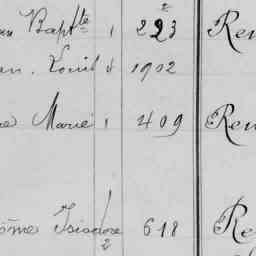 Bapt^te 1 223 Ren
Louis 1902
Marie 1 409 Ren
Isidore 1/2 618 Re